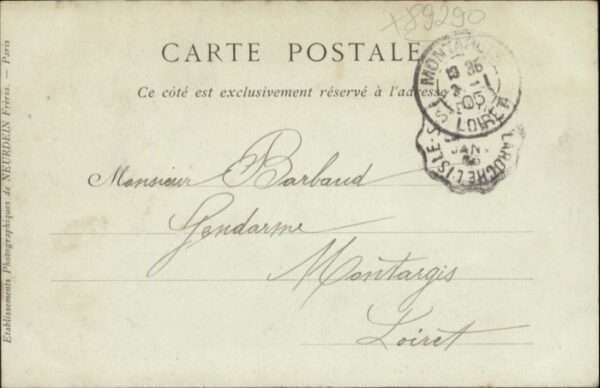 +89290
CARTE POSTALE
Ce côté est exclusivement réservé à l'adresse
MONTARGIS
05
LOIRET
LAROCHE L'ISLE
JANV
Monsieur Barbaud
Gendarme
Montargis
Loiret
Etablissements Photographiques de NEURDEIN Frères. — Paris